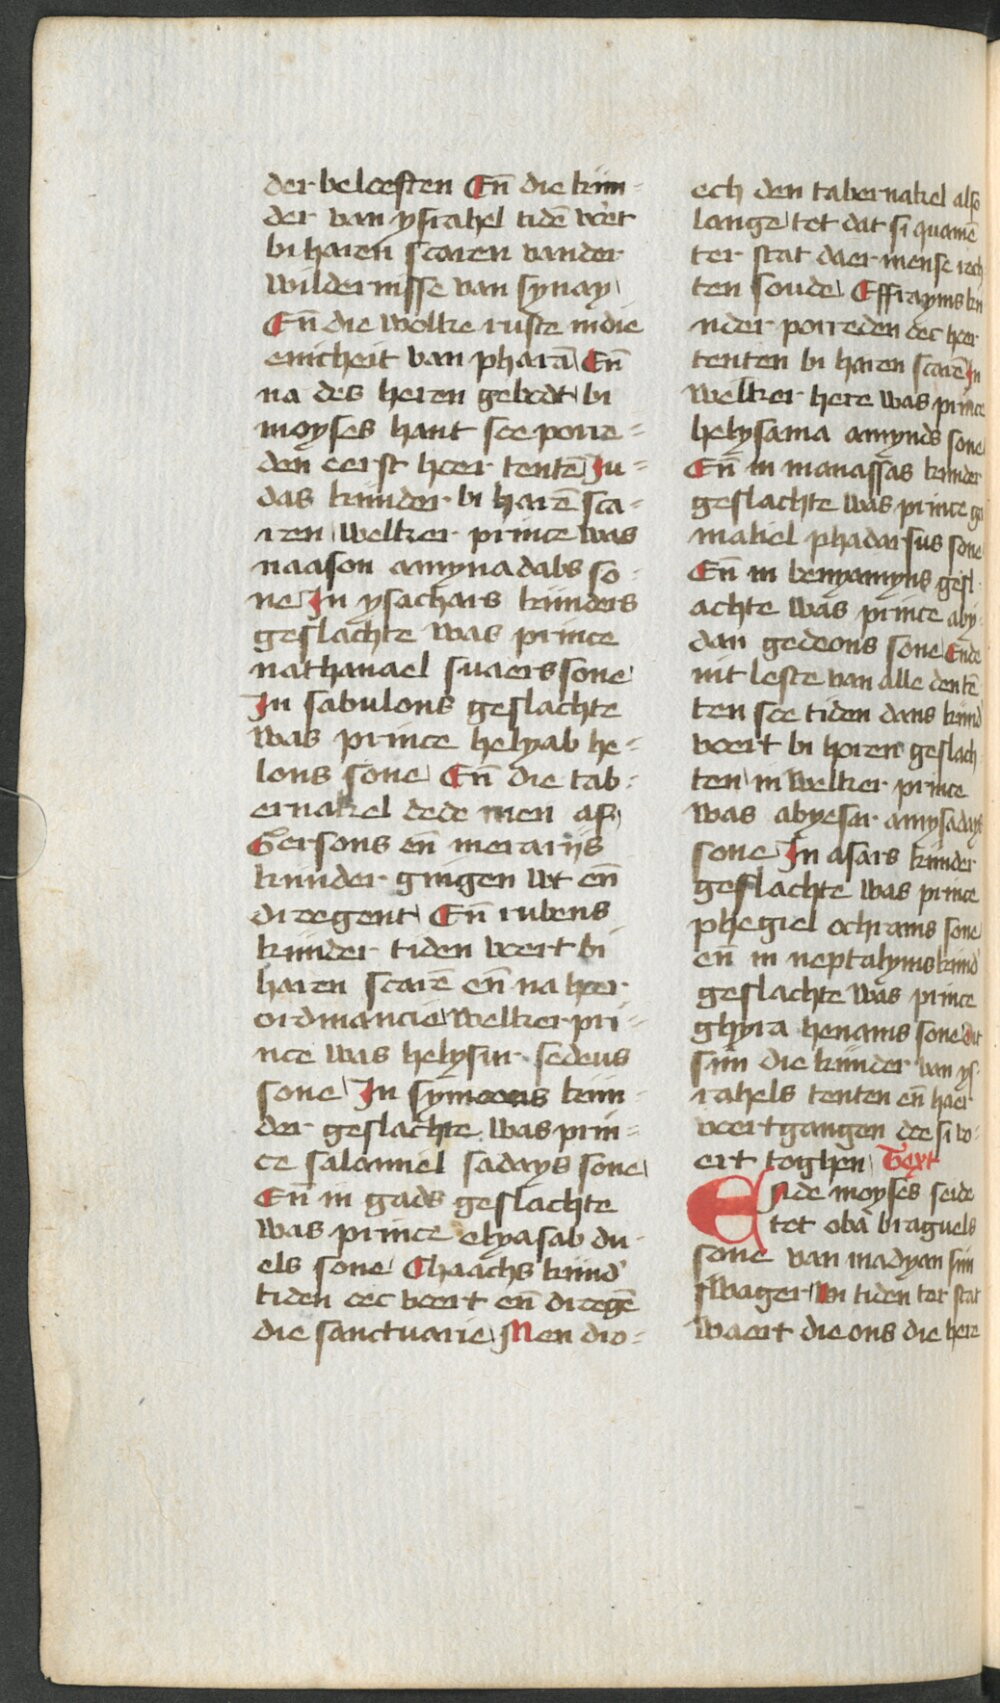 der beloeften En̄ die kin-
der van ysrahel tidē voert
bi haren scaren vander
wildernisse van synay
En̄ die wolke ruste in die
enicheit van pharā En̄
na des heren gebodt bi
moyses hant see porre-
den eerst heer tentē Ju-
das kinder bi harē sca-
ren welker prince was
naason amynadabs so-
ne In ysachars kinders
geslachte was prince
nathanael suaers sone
In sabulons geslachte
was prince helyab he-
lons sone En̄ die tab-
ernakel dede men af
Gersons en̄ merariis
kinder gingen wt en̄
dreegent En̄ rubens
kinder tiden voert bi
haren scarē en̄ na heer
ordinancie welker pri-
nce was helysur sedeus
sone In symeons kin-
der geslachte was prin-
ce salamiel sadays sone
En̄ in gads geslachte
was prince elyasab du-
els sone Chaachs kind'
tiden oec voert en̄ dreegē
die sanctuarie Men dro-
ech den tabernakel also
lange tot dat si quamē
ter stat daer mense rech
ten soude Effrayms ki
nder porreden oec heer
tenten bi haren scarē In
welker here was prince
helysama amyuds sone
En̄ in manassas kinder
geslachte was prince ga
maliel phadarsus sone
En̄ in benyamyns gesl-
achte was prince aby-
dan gedeons sone Ende
int leste van alle den tē
ten see tiden dans kind
voert bi horen geslach-
ten in welker prince
was abyesur amysadays
sone In asars kinder
geslachte was prince
phegiel ochrams sone
en̄ in neptalyms kind'
geslachte was prince
ghyra henams sone dit
siin die kinder van ys-
rahels tenten en̄ haer
voertgangen doe si vo-
ert toghen Text
Ende moyses seide
tot obab raguels
sone van madyan siin
swager Wi tiden ter stat
waert die ons die here